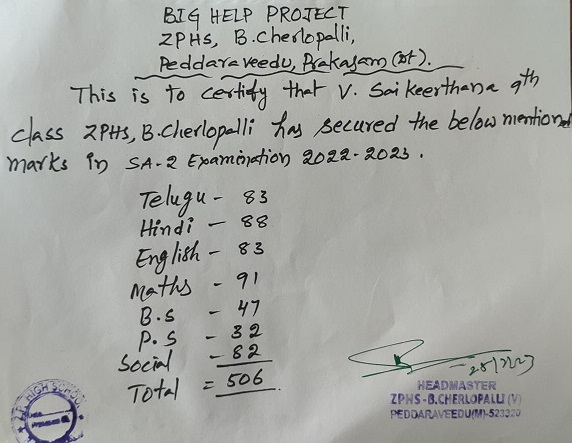 BIG HELP PROJECT
ZPHS, B.Cherlopalli,
Peddaraveedu, Prakasam (Dt).
This is to certify that V. Sai keerthana 9th
class ZPHS, B.Cherlopalli has secured the below mentioned
marks in SA-2 Examination 2022-2023.
Telugu - 83
Hindi - 88
English - 83
Maths - 91
B.S - 47
P.S - 32
Social - 82
Total = 506
HEADMASTER
ZPHS-B.CHERLOPALLI (V)
PEDDARAVEEDU(M)-523320
HIGH SCHOOL